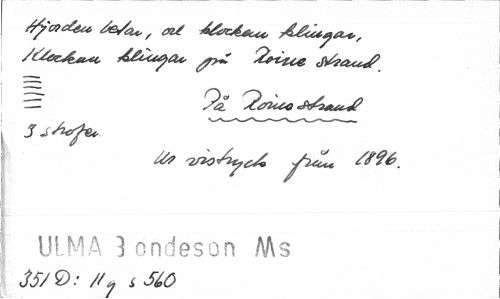 Hjorden betar, och klockan klingar,
Klockan klingar på Roine strand.
På Roine strand
3 strofer.
Ur vistryck från 1896.
ULMA Bondeson Ms
351 D: 11 g s 560